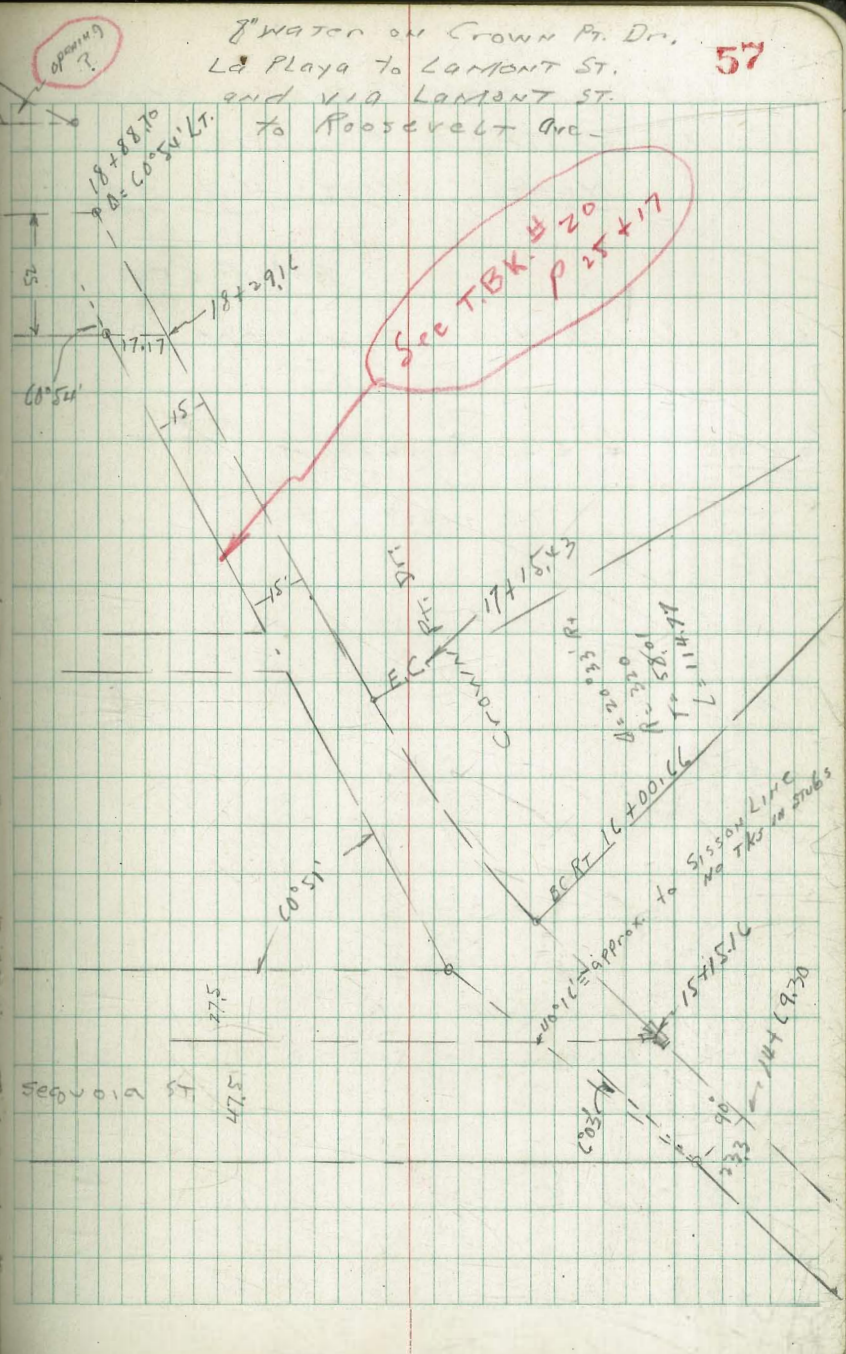 8" Water on Crown Pt. Dr.
La Playa to Lamont St.
and via Lamont St.
to Roosevelt Ave-
57
opening
?
18+88.70
Δ=60°54' LT.
25
17.17
18+29.16
60°54'
15
See T.BK. # 20
P 25+17
15'
Crown Pt. Dr.
E.C.
17+15.43
Δ=20°33' Rt
R=320
T=58.01
L=114.77
BC RT 16+00.66
60°51'
40°16'= approx. to Sisson Line
No TKS in Stubs
27.5
15+15.16
14+69.30
Sequoia ST.
47.5
6°03'
90°
23.3